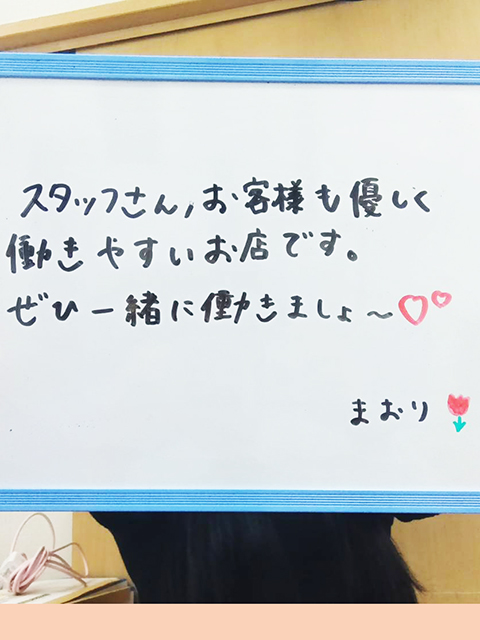 スタッフさん,お客様も優しく
働きやすいお店です。
ぜひ一緒に働きましょ～♡♡
まおり